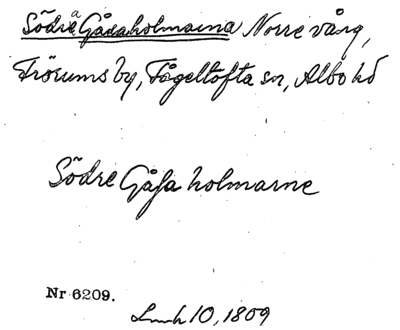 Södra Gåsaholmarna Norrevång,
Frörums by, Fågeltofta sn, Albo hd
Södre Gåsa holmarne
Nr 6209.
Lmk 10, 1809